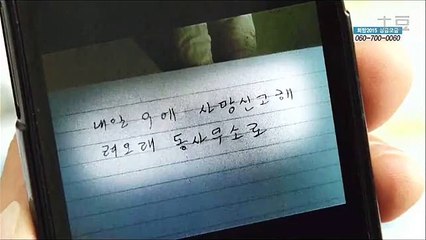 土豆
희망2015 성금모금
060-700-0060
내일 9에 사망신고해
려오래 동사무소로